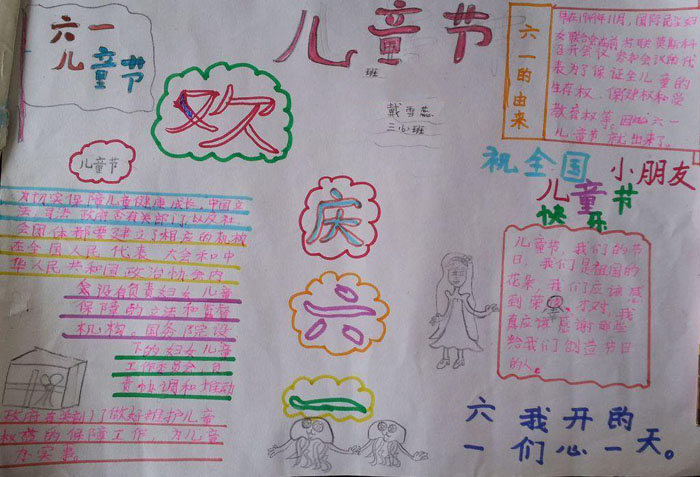 六一
儿童节
儿童节
班
戴雪蕊
三(3)班
六一的由来
早在1949年11月,国际民主妇
女联合会在莫斯科
召开会议,参加会议的代
表为了保证全儿童的
生存权、保健权和受
教育权等,因此六一
儿童节就出来了。
欢
庆
六
一
祝全国小朋友
儿童节
快乐
儿童节,我们的节
日,我们是祖国的
花朵,我们应该感
到荣,才对,我
真应该感谢那些
给我们创造节日
的人。
儿童节
为切实保障儿童健康成长,中国立
法、司法、政府各有关部门,以及社
会团体都建立了相应的机构
在全国人民代表大会和中
华人民共和国政治协会内
会设有负责妇女儿童
保障的立法和监督
机构,国务院设
下的妇女儿童
工作委员会,负
责协调和推动
政府有关部门做好维护儿童
权益的保障工作,为儿童
办实事。
六一
我们开心的一天。